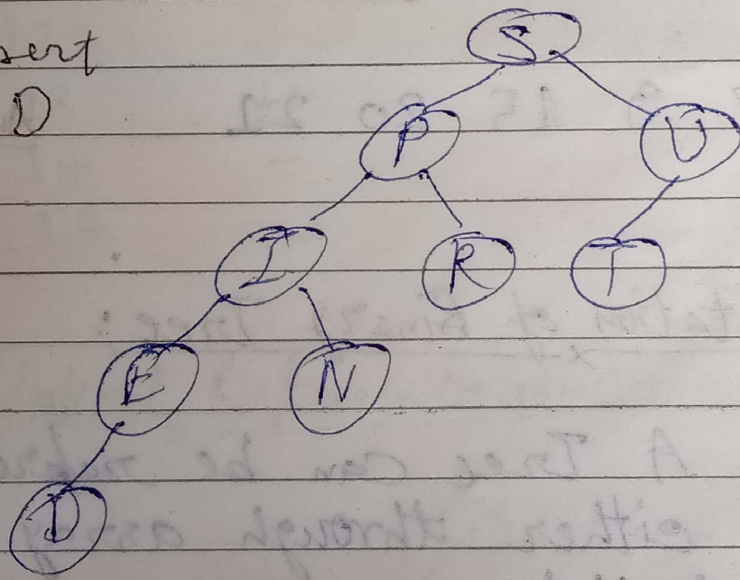 sert
D
S
P U
I R T
E N
D